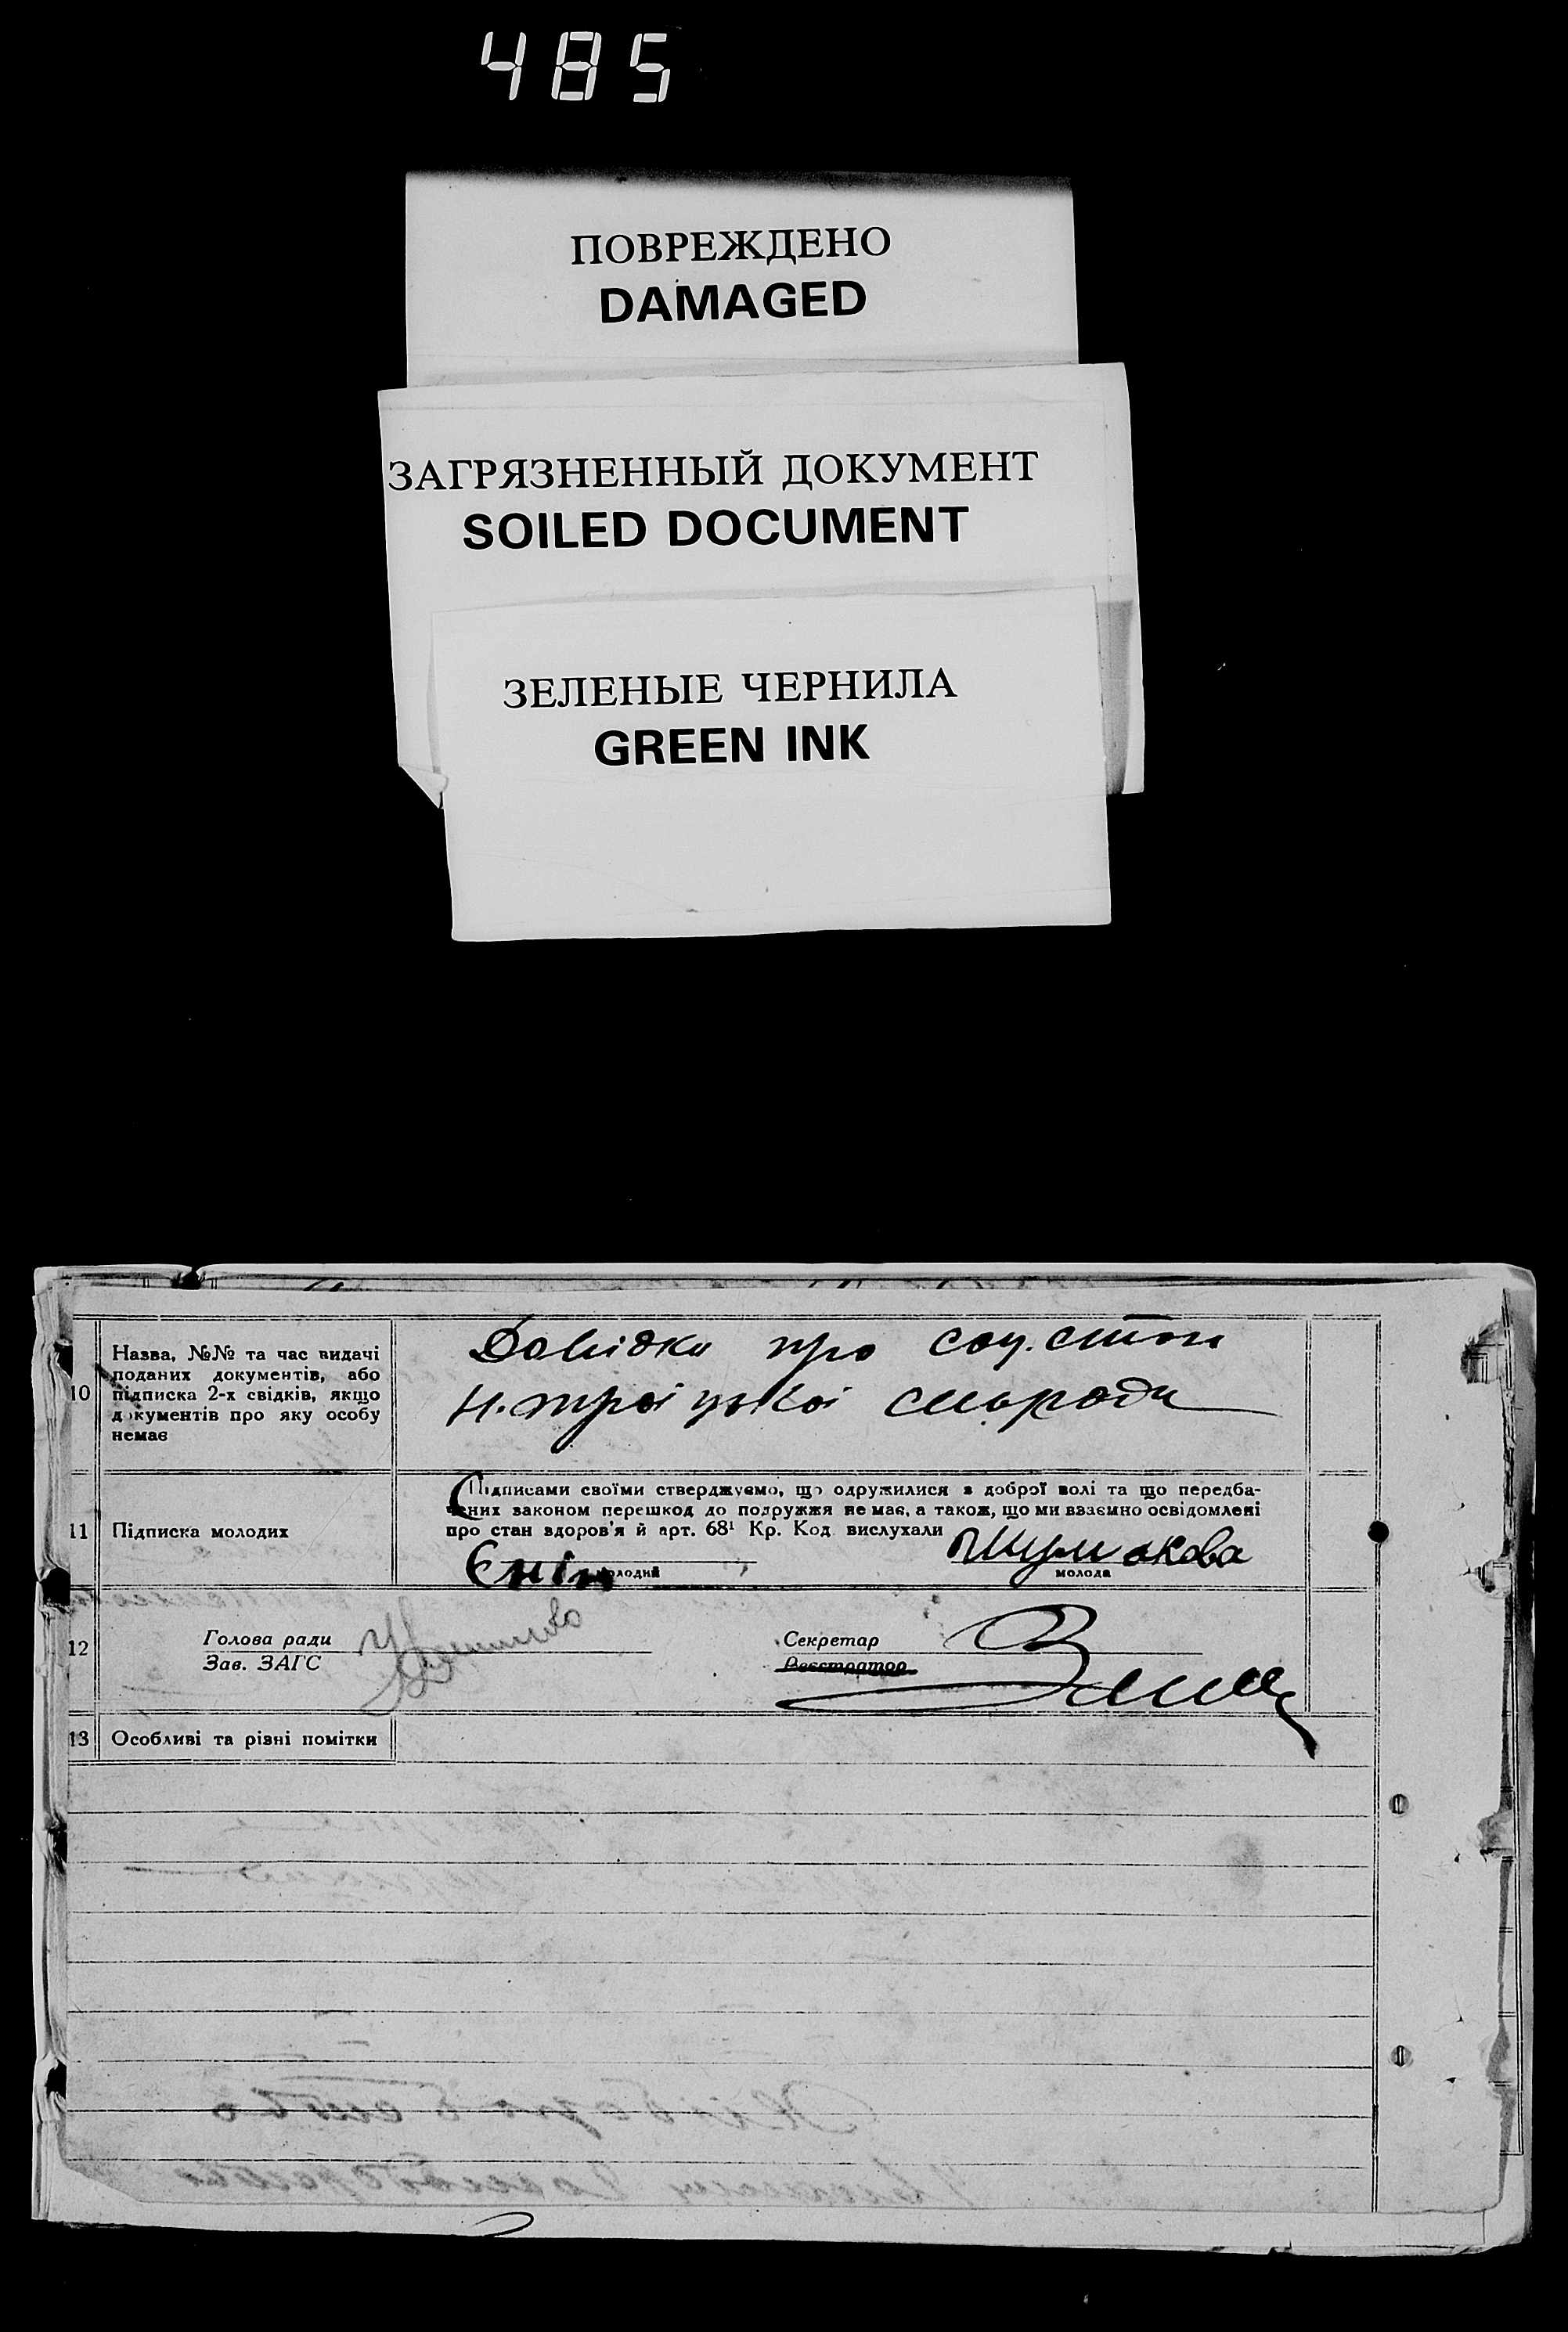 485
ПОВРЕЖДЕНО
DAMAGED
ЗАГРЯЗНЕННЫЙ ДОКУМЕНТ
SOILED DOCUMENT
ЗЕЛЕНЫЕ ЧЕРНИЛА
GREEN INK
10
Назва, №№ та час видачі
поданих документів, або
підписка 2-х свідків, якщо
документів про яку особу
немає
Довідка про соц. стан
Н. Троіцької сільради
11
Підписка молодих
Підписами своїми стверджуємо, що одружилися з доброї волі та що передба-
чених законом перешкод до подружжя не має, а також, що ми взаємно освідомлені
про стан здоров'я й арт. 68¹ Кр. Код. вислухали
Єнін
молодий
Шумакова
молода
12
Голова ради
Зав. ЗАГС
Секретар
Реєстратор
13
Особливі та різні помітки